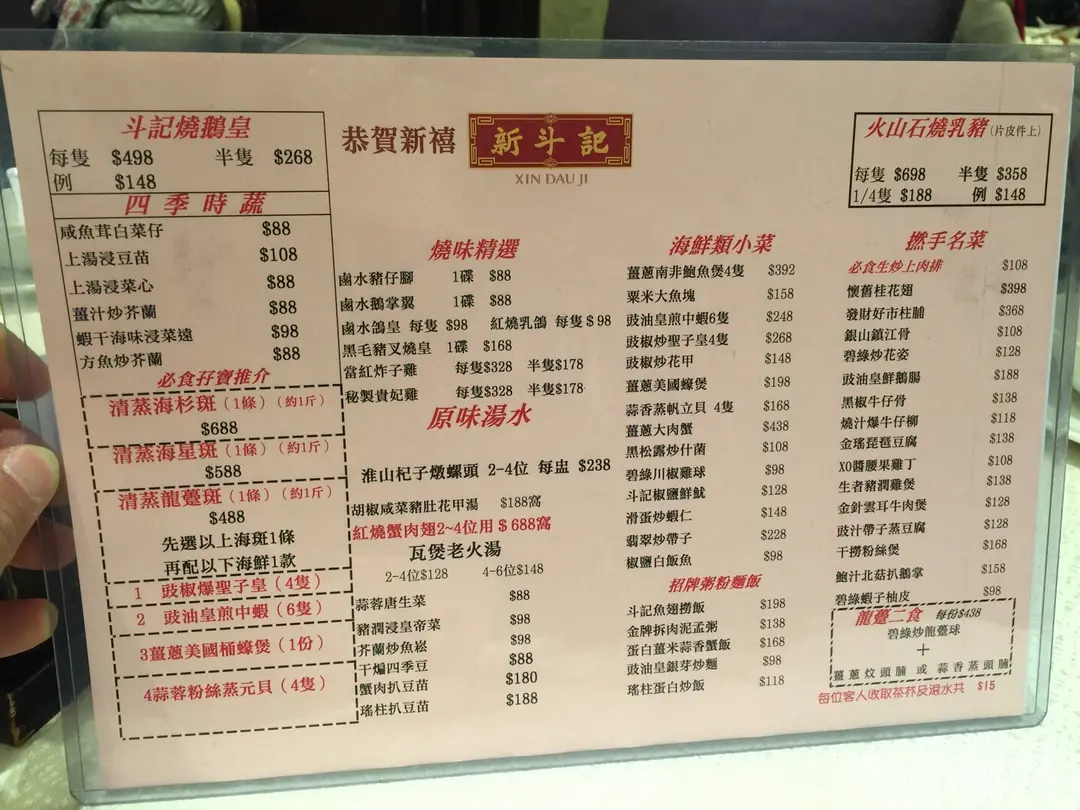 恭賀新禧
新斗記
XIN DAU JI
斗記燒鵝皇
每隻 $498 半隻 $268
例 $148
四季時蔬
咸魚茸白菜仔 $88
上湯浸豆苗 $108
上湯浸菜心 $88
薑汁炒芥蘭 $88
蝦干海味浸菜遠 $98
方魚炒芥蘭 $88
必食孖寶推介
清蒸海杉斑(1條)(約1斤)
$688
清蒸海星斑(1條)(約1斤)
$588
清蒸龍躉斑(1條)(約1斤)
$488
先選以上海斑1條
再配以下海鮮1款
1 豉椒爆聖子皇(4隻)
2 豉油皇煎中蝦(6隻)
3薑蔥美國桶蠔煲(1份)
4蒜蓉粉絲蒸元貝(4隻)
燒味精選
鹵水豬仔腳 1碟 $88
鹵水鵝掌翼 1碟 $88
鹵水鴿皇 每隻 $98 紅燒乳鴿 每隻$98
黑毛豬叉燒皇 1碟 $168
當紅炸子雞 每隻$328 半隻$178
秘製貴妃雞 每隻$328 半隻$178
原味湯水
淮山杞子燉螺頭 2-4位 每盅 $238
胡椒咸菜豬肚花甲湯 $188窩
紅燒蟹肉翅2~4位用$688窩
瓦煲老火湯
2-4位$128 4-6位$148
蒜蓉唐生菜 $88
豬潤浸皇帝菜 $98
芥蘭炒魚崧 $98
干煸四季豆 $88
蟹肉扒豆苗 $180
瑤柱扒豆苗 $188
海鮮類小菜
薑蔥南非鮑魚煲4隻 $392
粟米大魚塊 $158
豉油皇煎中蝦6隻 $248
豉椒炒聖子皇4隻 $268
豉椒炒花甲 $148
薑蔥美國蠔煲 $198
蒜香蒸帆立貝 4隻 $168
薑蔥大肉蟹 $438
黑松露炒什菌 $108
碧綠川椒雞球 $98
斗記椒鹽鮮魷 $128
滑蛋炒蝦仁 $148
翡翠炒帶子 $228
椒鹽白飯魚 $98
招牌粥粉麵飯
斗記魚翅撈飯 $198
金牌拆肉泥孟粥 $138
蛋白薑米蒜香蟹飯 $168
豉油皇銀芽炒麵 $98
瑤柱蛋白炒飯 $118
火山石燒乳豬(片皮件上)
每隻 $698 半隻 $358
1/4隻 $188 例 $148
撚手名菜
必食生炒上肉排 $108
懷舊桂花翅 $398
發財好市柱脯 $368
銀山鎮江骨 $108
碧綠炒花姿 $128
豉油皇鮮鵝腸 $188
黑椒牛仔骨 $138
燒汁爆牛仔柳 $118
金瑤琵琶豆腐 $138
XO醬腰果雞丁 $108
生者豬潤雞煲 $138
金針雲耳牛肉煲 $128
豉汁帶子蒸豆腐 $128
干撈粉絲煲 $168
鮑汁北菇扒鵝掌 $158
碧綠蝦子柚皮 $98
龍躉二食 每份$438
碧綠炒龍躉球
+
薑蔥炆頭腩 或 蒜香蒸頭腩
每位客人收取茶芥及溫水共 $15